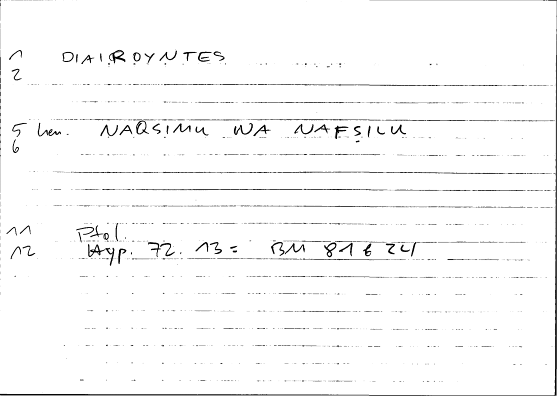 1 DIAIROYNTES
2
5 hen. NAQSIMU WA NAFṢILU
6
11 Ptol.
12 Hyp. 72. 13 = BM 81 b 24